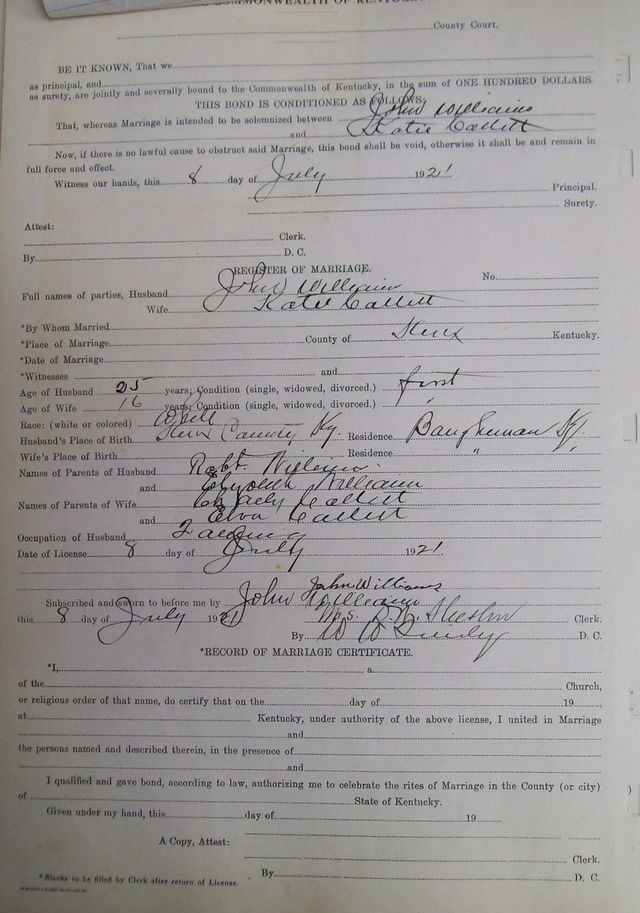 COMMONWEALTH OF KENTUCKY
County Court.
BE IT KNOWN, That we
as principal, and
as surety, are jointly and severally bound to the Commonwealth of Kentucky, in the sum of ONE HUNDRED DOLLARS.
THIS BOND IS CONDITIONED AS FOLLOWS:
That, whereas Marriage is intended to be solemnized between John Williams
and Katie
Now, if there is no lawful cause to obstruct said Marriage, this bond shall be void, otherwise it shall be and remain in
full force and effect.
Witness our hands, this 8 day of July 1921
Principal.
Surety.
Attest:
Clerk.
By D. C.
REGISTER OF MARRIAGE.
No.
Full names of parties, Husband John Williams
Wife Katie
*By Whom Married
*Place of Marriage County of Kentucky.
*Date of Marriage
*Witnesses and
Age of Husband 25 years; Condition (single, widowed, divorced.) first
Age of Wife 16 years; Condition (single, widowed, divorced.) "
Race: (white or colored) White
Husband's Place of Birth County Ky. Residence Baughman Ky.
Wife's Place of Birth Residence "
Names of Parents of Husband Robt. Williams
and Williams
Names of Parents of Wife
and
Occupation of Husband
Date of License 8 day of July 1921
John Williams
Subscribed and sworn to before me by John Williams
this 8 day of July 1921 Mrs. Clerk.
By D. C.
*RECORD OF MARRIAGE CERTIFICATE.
*I, a
of the Church,
or religious order of that name, do certify that on the day of 19
at Kentucky, under authority of the above license, I united in Marriage
and
the persons named and described therein, in the presence of
and
I qualified and gave bond, according to law, authorizing me to celebrate the rites of Marriage in the County (or city)
of State of Kentucky.
Given under my hand, this day of 19
A Copy, Attest:
Clerk.
By D. C.
*Blanks to be filled by Clerk after return of License.